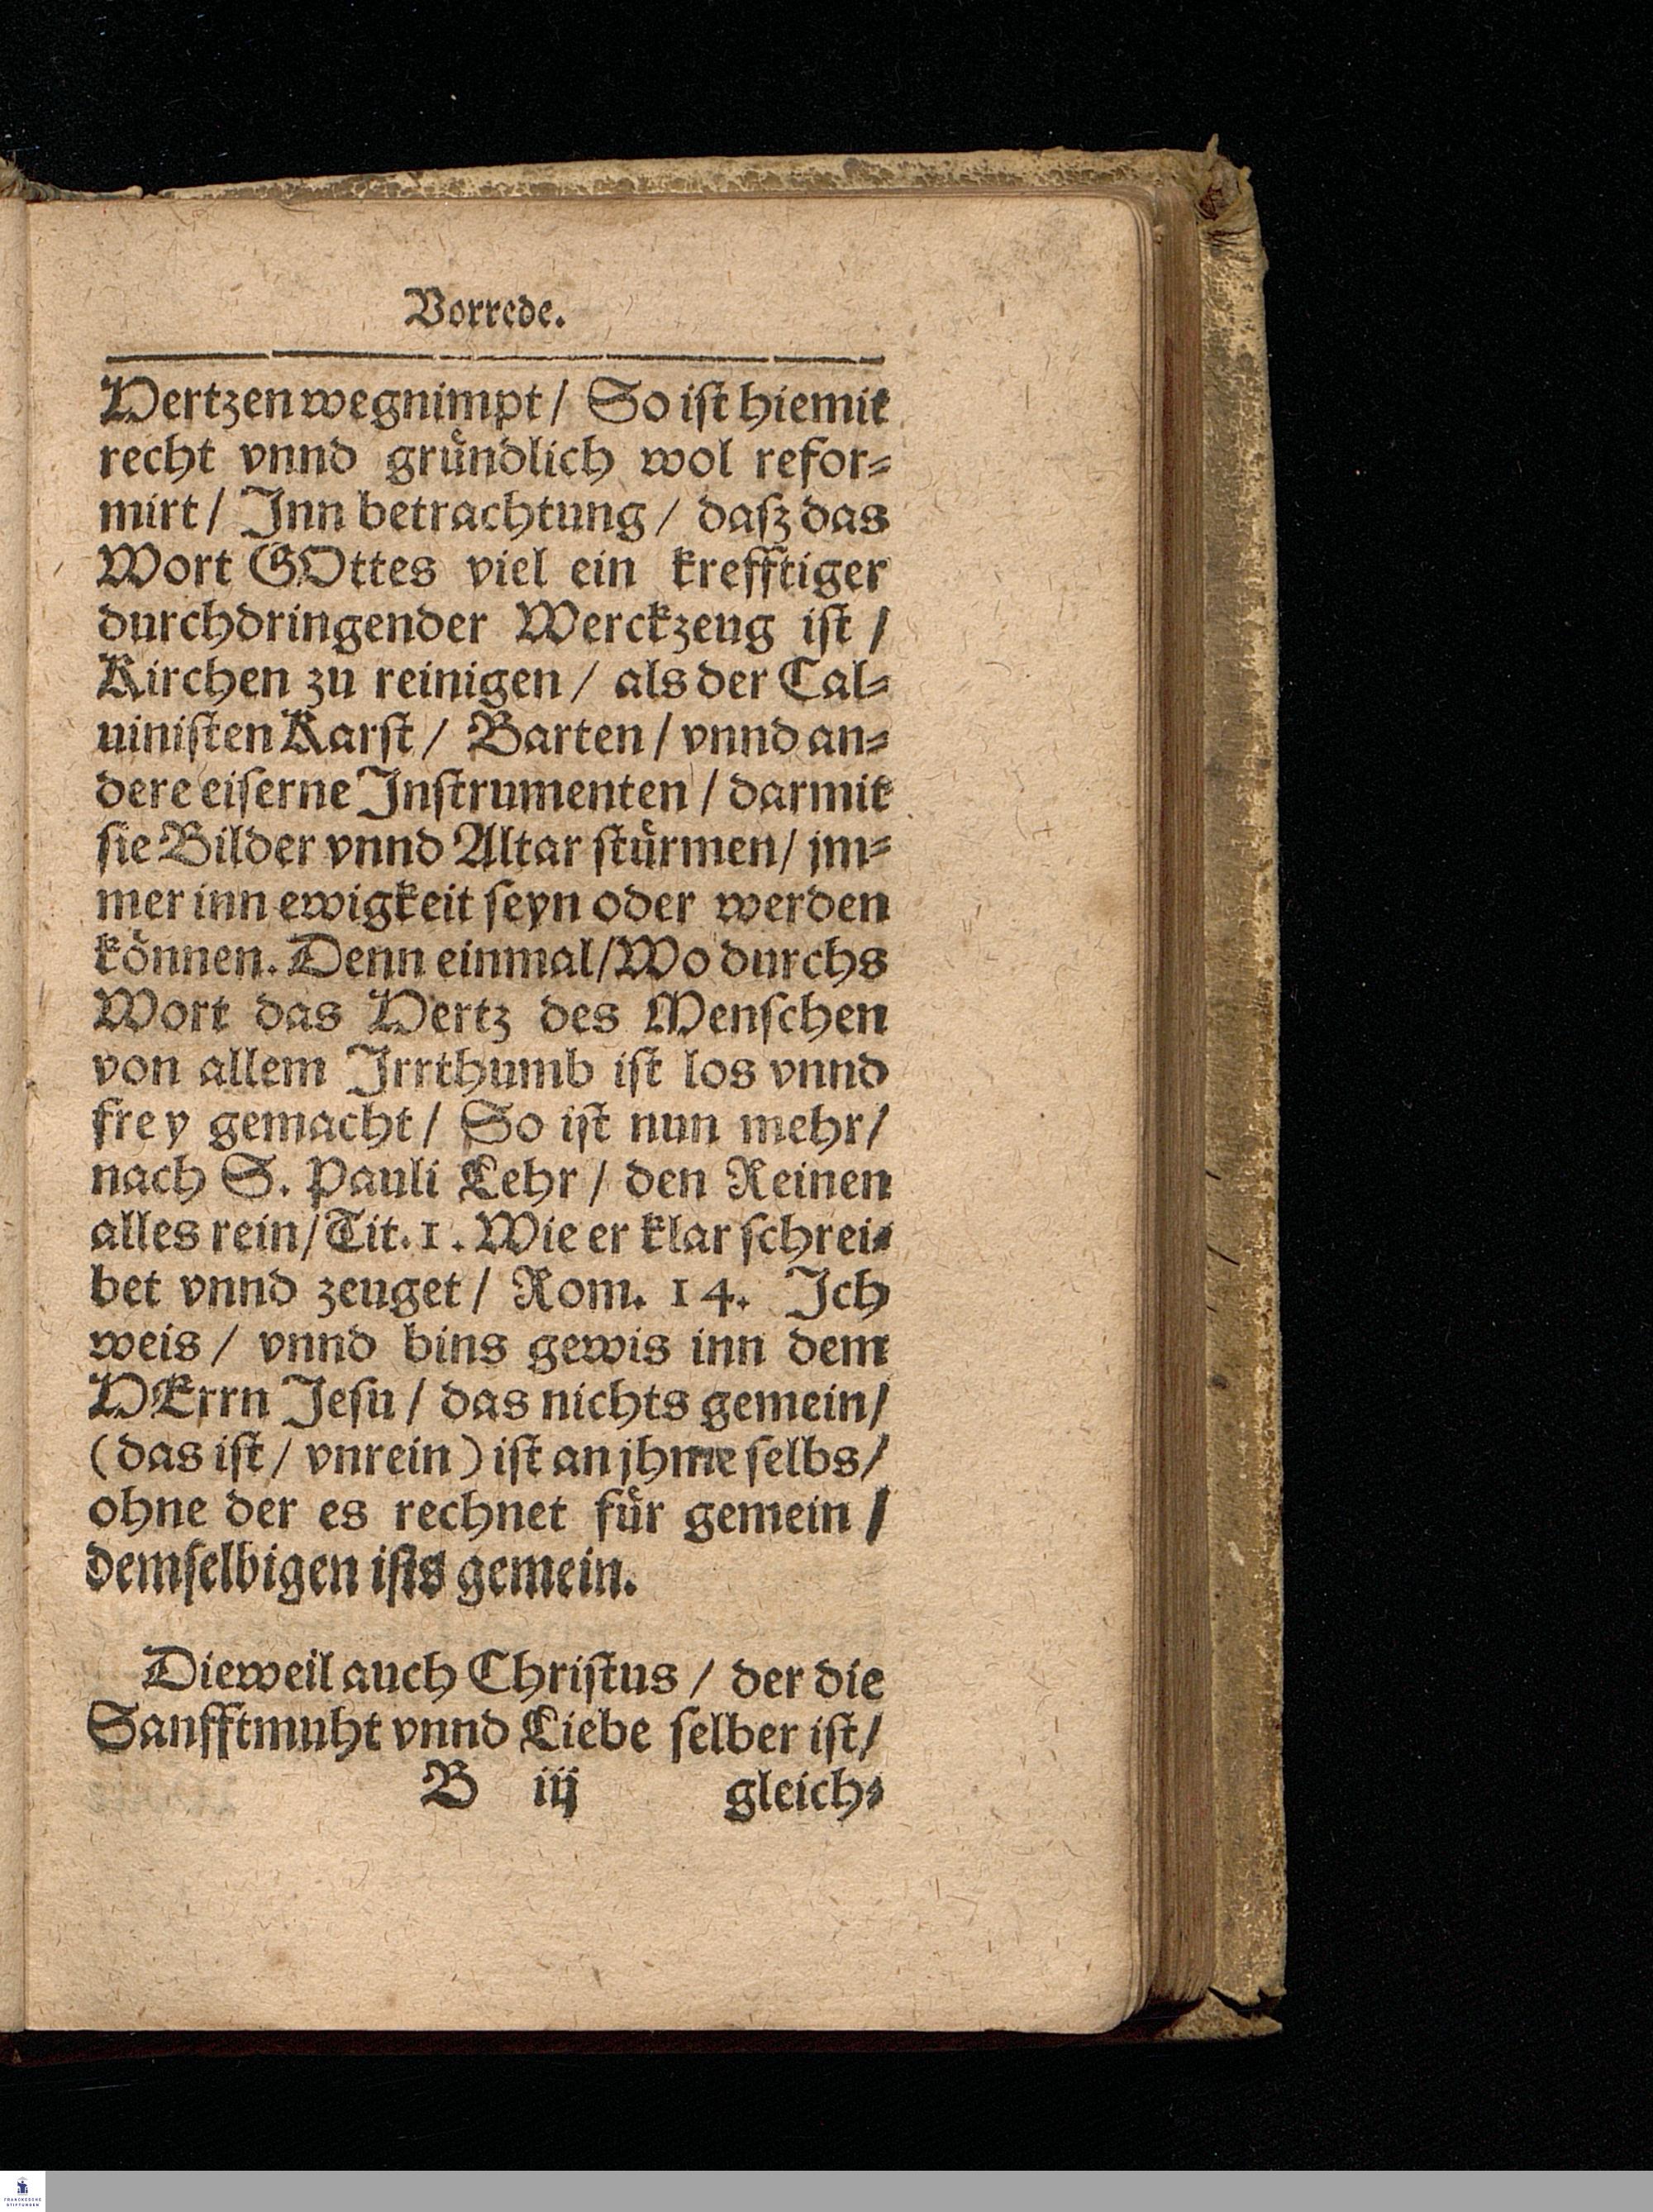 Vorrede.
Hertzen wegnimpt/ So ist hiemit
recht vnnd gruͤndlich wol refor⸗
mirt/ Inn betrachtung/ dasz das
Wort GOttes viel ein krefftiger
durchdringender Werckzeug ist/
Kirchen zu reinigen/ als der Cal⸗
uinisten Karst/ Barten/ vnnd an⸗
dere eiserne Instrumenten/ darmit
sie Bilder vnnd Altar stuͤrmen/ jm⸗
mer inn ewigkeit seyn oder werden
koͤnnen. Denn einmal/ Wo durchs
Wort das Hertz des Menschen
von allem Irrthumb ist los vnnd
frey gemacht/ So ist nun mehr/
nach S. Pauli Lehr/ den Reinen
alles rein/ Tit. 1. Wie er klar schrei⸗
bet vnnd zeuget/ Rom. 14. Ich
weis/ vnnd bins gewis inn dem
HErrn Jesu/ das nichts gemein/
(das ist/ vnrein) ist an jhme selbs/
ohne der es rechnet fuͤr gemein/
demselbigen ists gemein.
Dieweil auch Christus/ der die
Sanfftmuht vnnd Liebe selber ist/
B iij gleich⸗
FRANCKESCHE
STIFTUNGEN